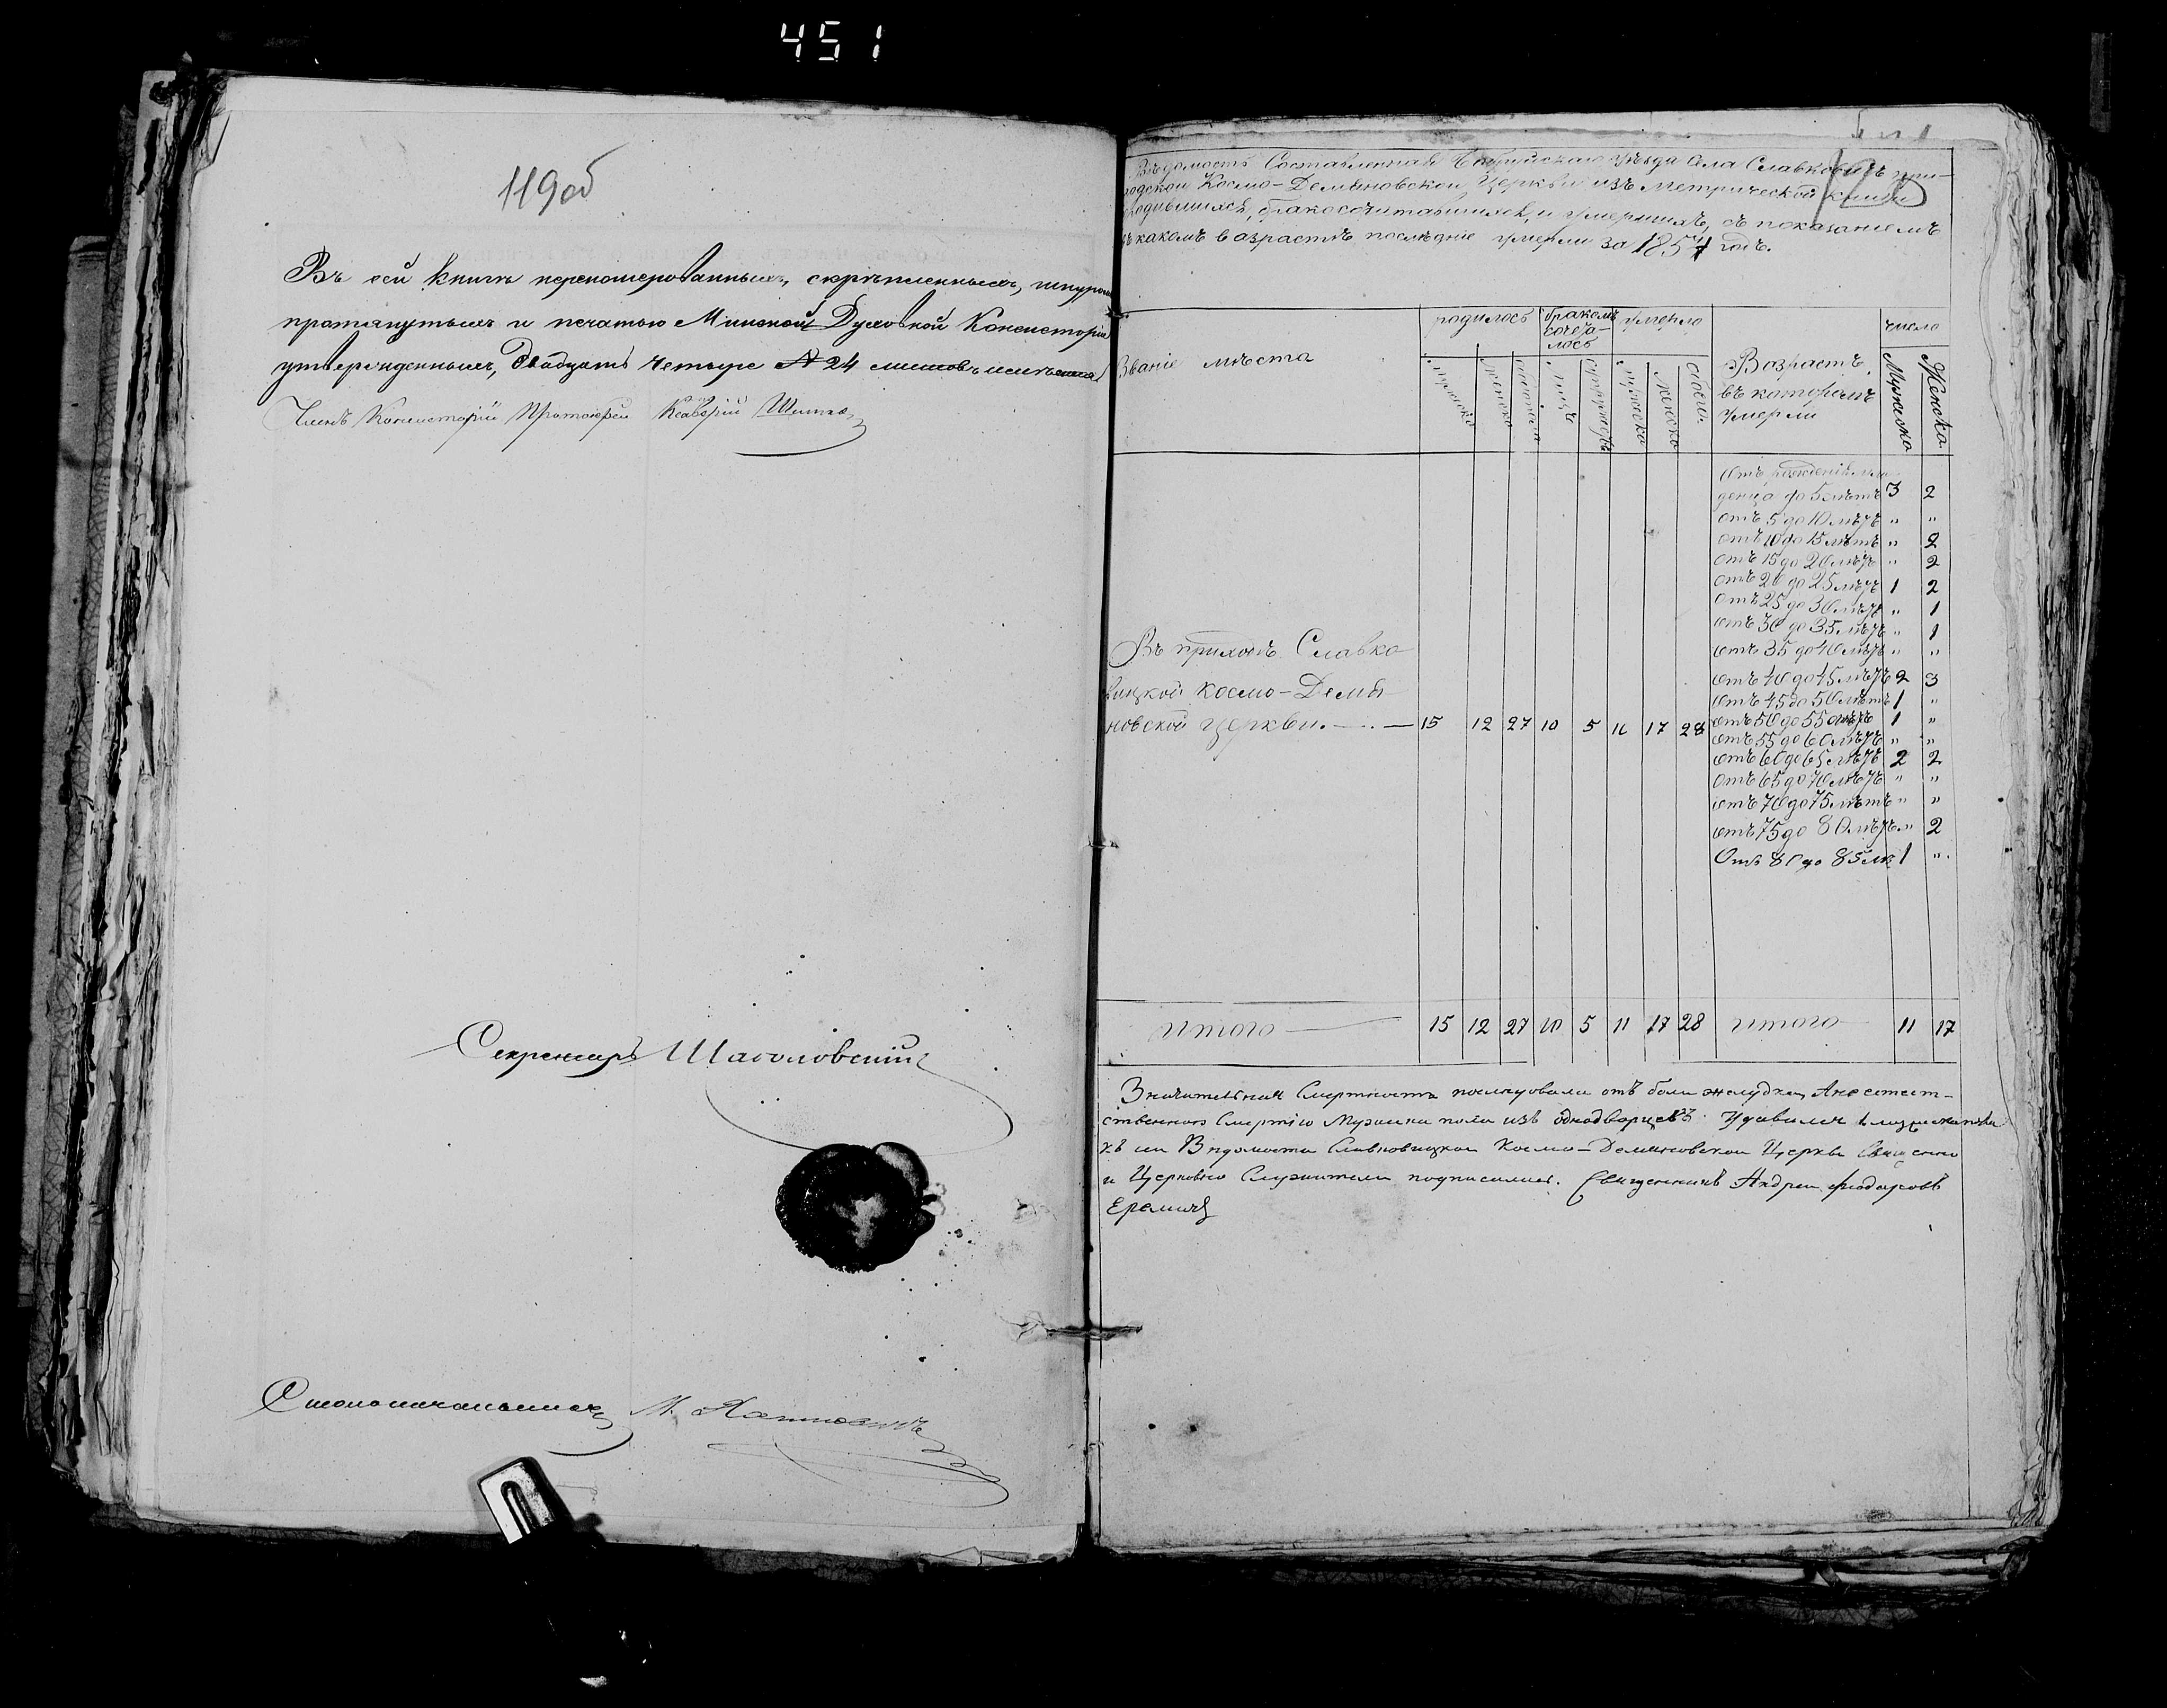 451
119об
Въ сей книгѣ перенумерованныхъ, скрѣпленныхъ, шнуромъ
протянутыхъ и печатью Минской Духовной Консисторіи
утвержденныхъ, двадцать четыре № 24 листовъ
Членъ Консисторіи Протоіерей Ксаверій
Секретарь
Столоначальникъ М.
120
Вѣдомость Составленная уѣзда села Славковичъ при-
ходской Космо-Демьяновской Церкви изъ метрической книги
родившихся, бракосочитавшихся, и умершихъ, съ показаніемъ
въ какомъ возрастѣ послѣдніе умерли за 1857 годъ.
Званіе мѣста
родилось
бракомъ
сочета-
лось
умерло
Возрастъ
въ которомъ
умерли
число
Мужеска
Женска
мужеска
женска
лицъ
супружествъ
мужеска
женска
обоего
Отъ рожденія мла-
денца до 5 лѣтъ 3 2
отъ 5 до 10 лѣтъ " "
отъ 10 до 15 лѣтъ " 2
отъ 15 до 20 лѣтъ " 2
отъ 20 до 25 лѣтъ 1 2
отъ 25 до 30 лѣтъ " 1
отъ 30 до 35 лѣтъ " 1
отъ 35 до 40 лѣтъ " "
отъ 40 до 45 лѣтъ 2 3
отъ 45 до 50 лѣтъ 1 "
отъ 50 до 55 лѣтъ 1 "
отъ 55 до 60 лѣтъ " "
отъ 60 до 65 лѣтъ 2 2
отъ 65 до 70 лѣтъ " "
отъ 70 до 75 лѣтъ " "
отъ 75 до 80 лѣтъ " 2
Отъ 80 до 85 лѣ 1 "
Въ приходѣ Славко
вицкой Космо-Демья
новской церкви. 15 12 27 10 5 11 17 28
Итого 15 12 27 10 5 11 17 28 итого 11 17
Значительная Смертность послѣдовала отъ боли желудка, А неестест-
ственною Смертію Мужеска пола изъ однодворцевъ Удавился
къ сей Вѣдомости Славковицкой Космо-Демяновской Церкви Священно
и Церковно Служители подписались. Священникъ Андрей